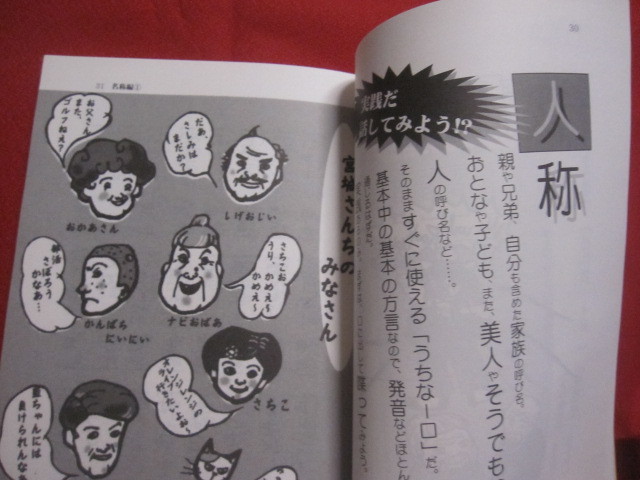 30
人称
実践だ
話してみよう!?
親や兄弟、自分も含めた家族の呼び名。
おとなや子ども、また、美人やそうでも
人の呼び名など……。
そのまますぐに使える「うちなー口」だ。
基本中の基本の方言なので、発音などほとん
31 名称編①
宮城さんちの
みなさん
だぁ、
さしみは
まだか?
しげおじい
お父さん
また、
ゴルフねえ?
おかあさん
さちこお
うり、かめえ〜
かめえ〜
ナビおばあ
部活
さぼろう
かなあ…
がんばら
にいにい
さちこ
ビレッジの
ライブ
行きたいよぉ、
ちゃんには
まけられんなあ